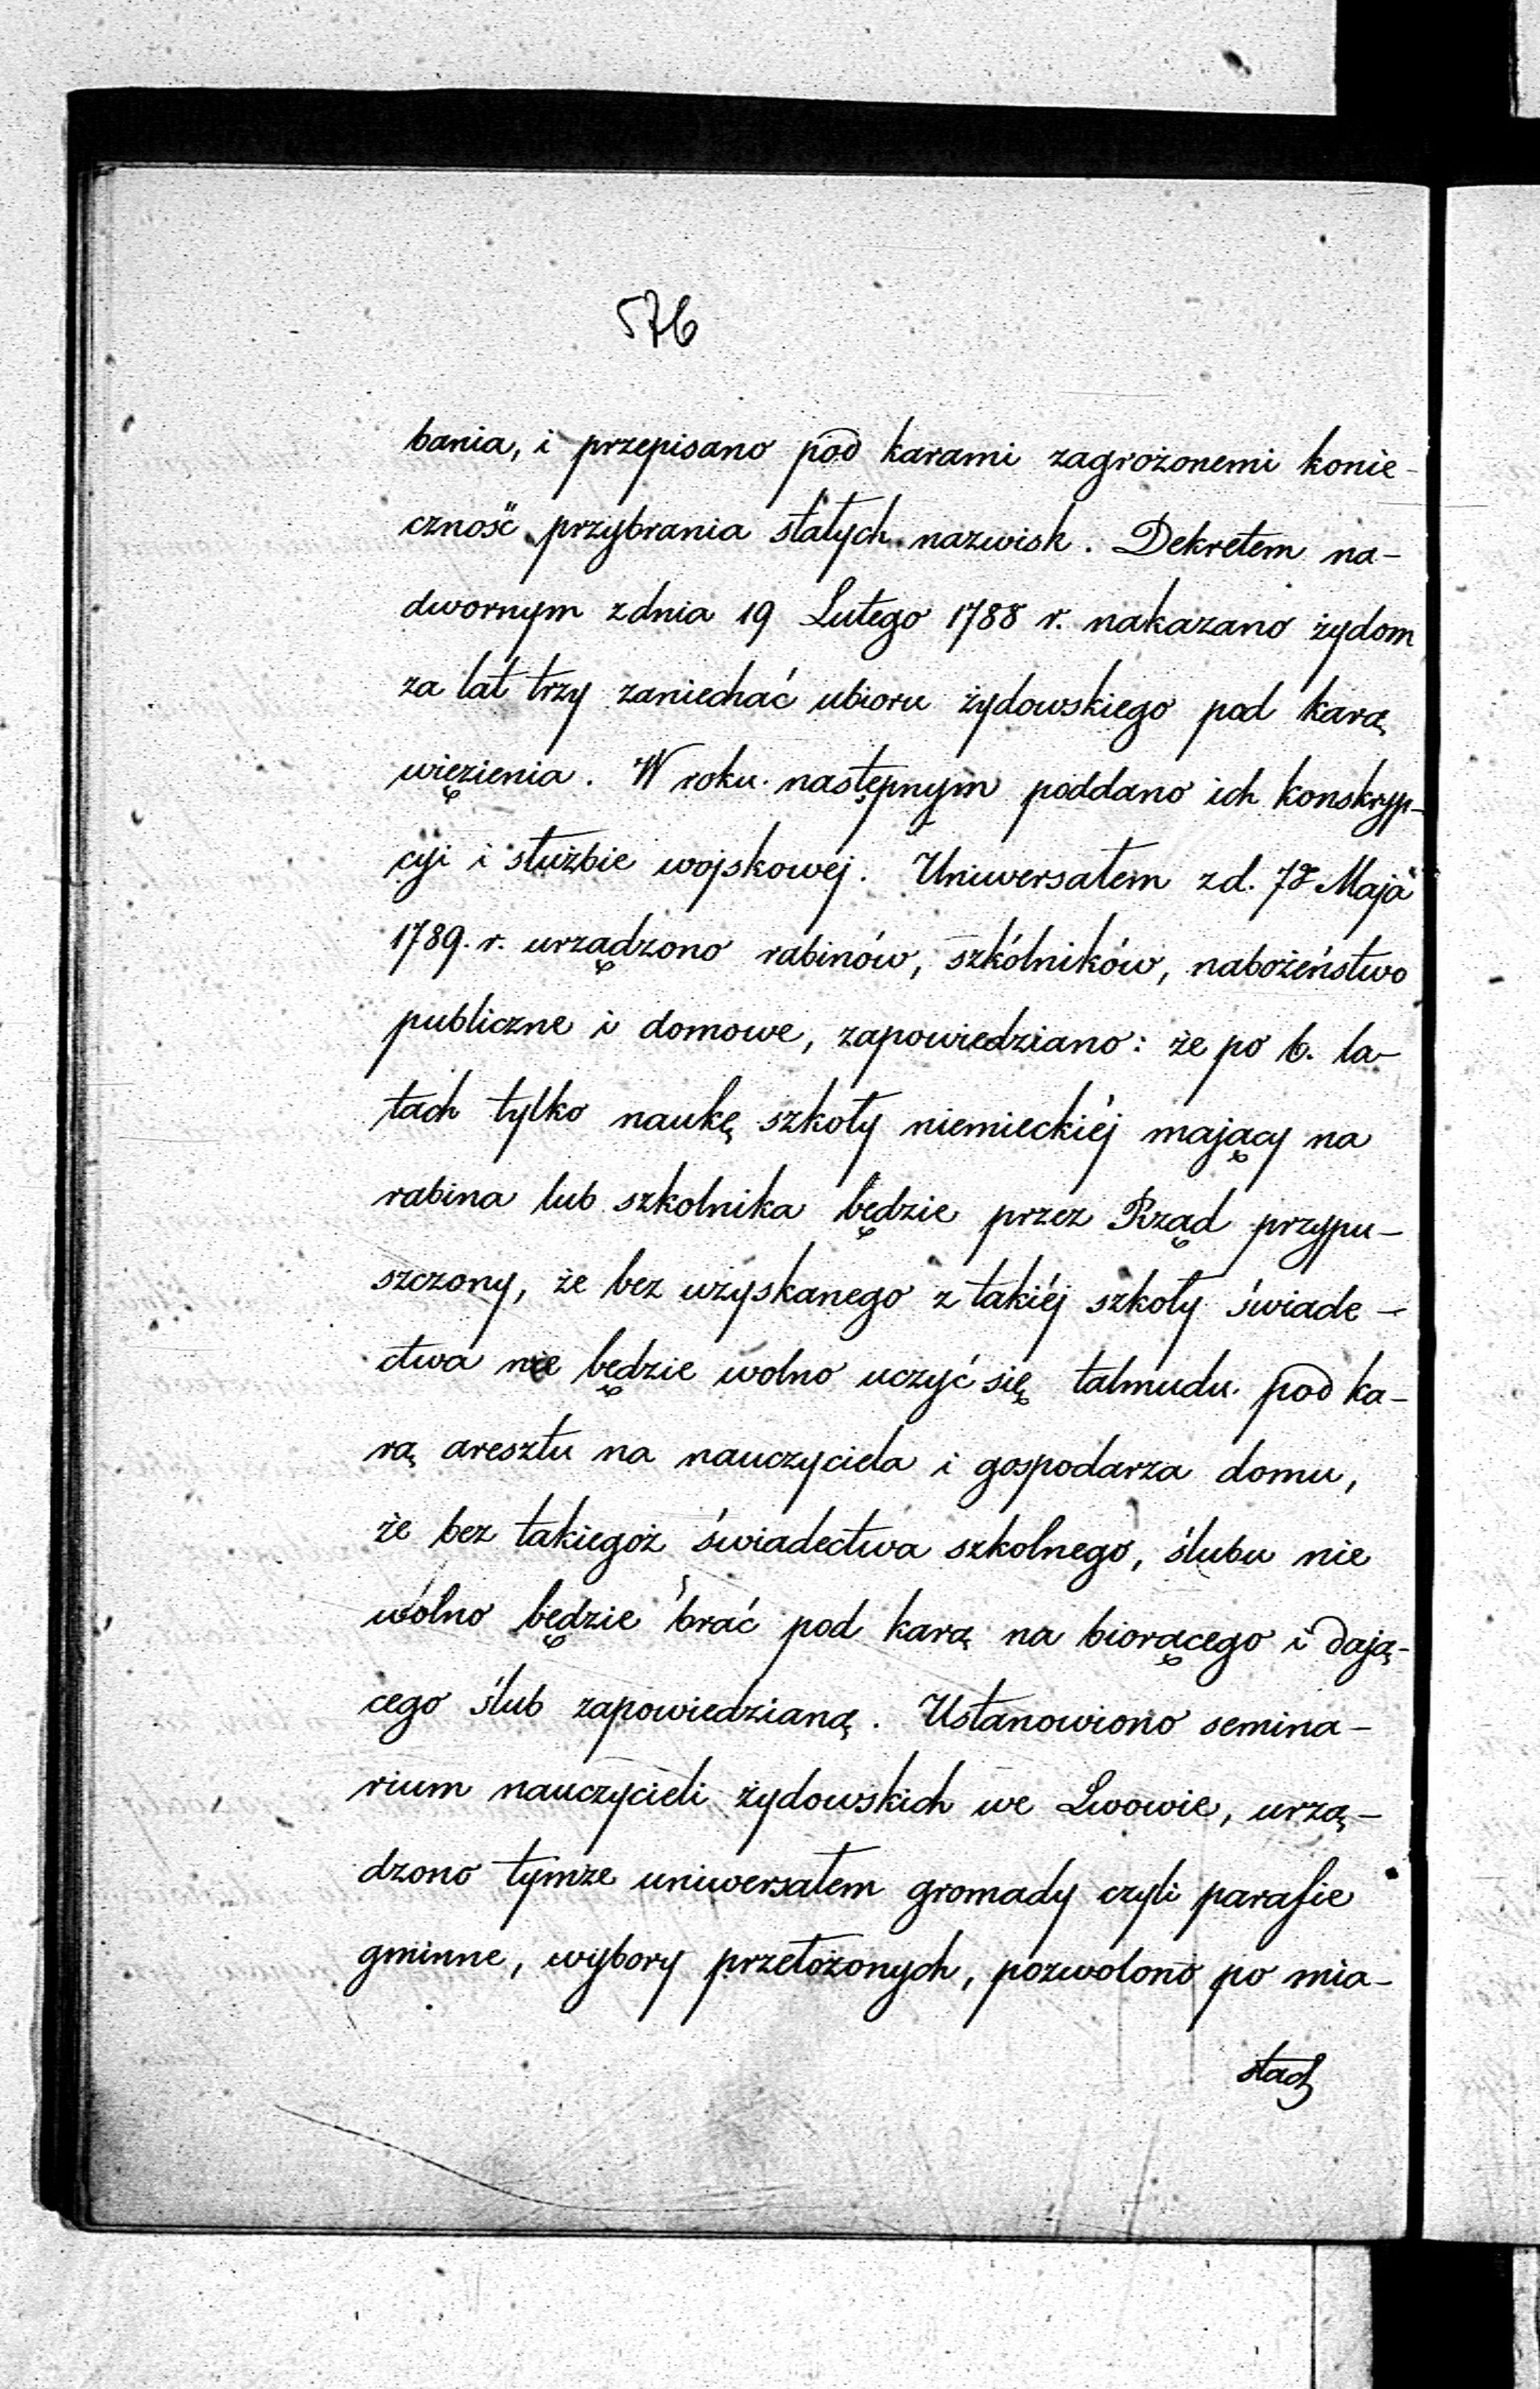 576
bania, i przepisano pod karami zagrożonemi konie-
czność przybrania stałych nazwisk. Dekretem na-
dwornym z dnia 19 Lutego 1788 r. nakazano żydom
za lat trzy zaniechać ubioru żydowskiego pod karą
więzienia. W roku następnym poddano ich konskryp-
cyi i służbie wojskowej. Uniwersałem z d. Maja
1789. r. urządzono rabinów, szkólników, nabożeństwo
publiczne i domowe, zapowiedziano: że po 6. la-
tach tylko naukę szkoły niemieckiéj mający na
rabina lub szkolnika będzie przez Rząd przypu-
szczony, że bez uzyskanego z takiéj szkoły świade-
ctwa nie będzie wolno uczyć się talmudu pod ka-
rą aresztu na nauczyciela i gospodarza domu,
że bez takiegoż świadectwa szkolnego, ślubu nie
wolno będzie brać pod karą na biorącego i dają-
cego ślub zapowiedzianą. Ustanowiono semina-
rium nauczycieli żydowskich we Lwowie, urzą-
dzono tymże uniwersałem gromady czyli parafie
gminne, wybory przełożonych, pozwolono po mia-
stach